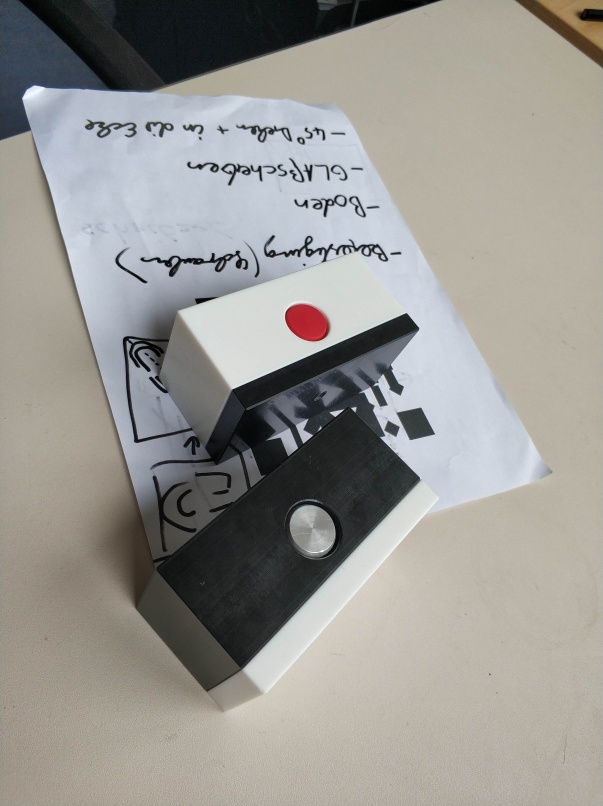 - Befestigung (Schrauben)
- Boden
- GLAßscheiben
- 45° Drehen + in die Ecke